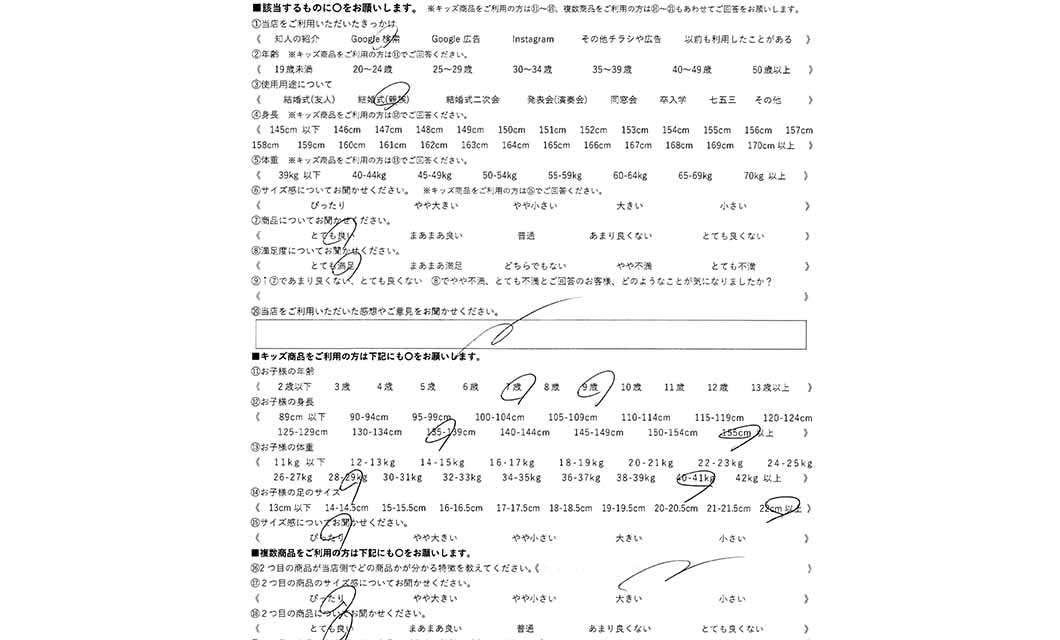 ■該当するものに〇をお願いします。 ※キッズ商品をご利用の方は⑪～⑮、複数商品をご利用の方は⑯～㉑もあわせてご回答をお願いします。
①当店をご利用いただいたきっかけ
《 知人の紹介 Google 検索 Google 広告 Instagram その他チラシや広告 以前も利用したことがある 》
②年齢 ※キッズ商品をご利用の方は⑪でご回答ください。
《 19歳未満 20～24歳 25～29歳 30～34歳 35～39歳 40～49歳 50歳以上 》
③使用用途について
《 結婚式(友人) 結婚式(親族) 結婚式二次会 発表会(演奏会) 同窓会 卒入学 七五三 その他 》
④身長 ※キッズ商品をご利用の方は⑫でご回答ください。
《 145cm 以下 146cm 147cm 148cm 149cm 150cm 151cm 152cm 153cm 154cm 155cm 156cm 157cm
158cm 159cm 160cm 161cm 162cm 163cm 164cm 165cm 166cm 167cm 168cm 169cm 170cm 以上 》
⑤体重 ※キッズ商品をご利用の方は⑬でご回答ください。
《 39kg 以下 40-44kg 45-49kg 50-54kg 55-59kg 60-64kg 65-69kg 70kg 以上 》
⑥サイズ感についてお聞かせください。 ※キッズ商品をご利用の方は⑮でご回答ください。
《 ぴったり やや大きい やや小さい 大きい 小さい 》
⑦商品についてお聞かせください。
《 とても良い まあまあ良い 普通 あまり良くない とても良くない 》
⑧満足度についてお聞かせください。
《 とても満足 まあまあ満足 どちらでもない やや不満 とても不満 》
⑨↑⑦であまり良くない、とても良くない ⑧でやや不満、とても不満とご回答のお客様、どのようなことが気になりましたか？
《 》
当店をご利用いただいた感想やご意見をお聞かせください。
■キッズ商品をご利用の方は下記にも〇をお願いします。
⑪お子様の年齢
《 2歳以下 3歳 4歳 5歳 6歳 7歳 8歳 9歳 10歳 11歳 12歳 13歳以上 》
⑫お子様の身長
《 89cm 以下 90-94cm 95-99cm 100-104cm 105-109cm 110-114cm 115-119cm 120-124cm
125-129cm 130-134cm 135-139cm 140-144cm 145-149cm 150-154cm 155cm 以上 》
⑬お子様の体重
《 11kg 以下 12-13kg 14-15kg 16-17kg 18-19kg 20-21kg 22-23kg 24-25kg
26-27kg 28-29kg 30-31kg 32-33kg 34-35kg 36-37kg 38-39kg 40-41kg 42kg 以上 》
⑭お子様の足のサイズ
《 13cm 以下 14-14.5cm 15-15.5cm 16-16.5cm 17-17.5cm 18-18.5cm 19-19.5cm 20-20.5cm 21-21.5cm 22cm 以上 》
⑮サイズ感についてお聞かせください。
《 ぴったり やや大きい やや小さい 大きい 小さい 》
■複数商品をご利用の方は下記にも〇をお願いします。
⑯2つ目の商品が当店側でどの商品かが分かる特徴を教えてください。《 》
⑰2つ目の商品のサイズ感についてお聞かせください。
《 ぴったり やや大きい やや小さい 大きい 小さい 》
⑱2つ目の商品についてお聞かせください。
《 とても良い まあまあ良い 普通 あまり良くない とても良くない 》